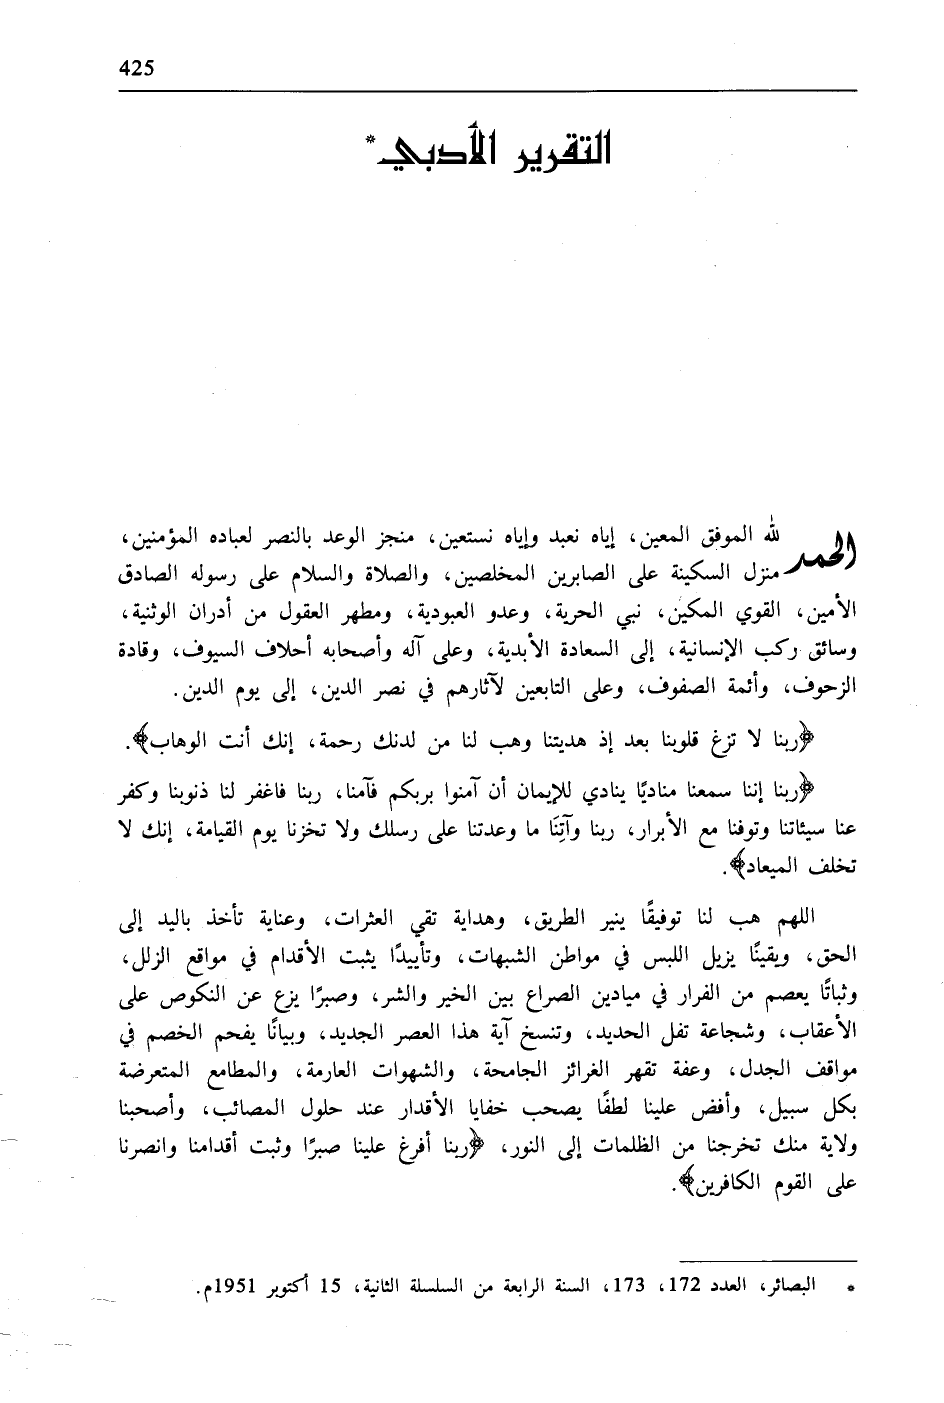 425
التقرير الأدبي*
الحمد لله الموفق المعين، إياه نعبد وإياه نستعين، منجز الوعد بالنصر لعباده المؤمنين،
منزل السكينة على الصابرين المخلصين، والصلاة والسلام على رسوله الصادق
الأمين، القوي المكين، نبي الحرية، وعدو العبودية، ومطهر العقول من أدران الوثنية،
وسائق ركب الإنسانية، إلى السعادة الأبدية، وعلى آله وأصحابه أحلاف السيوف، وقادة
الزحوف، وأئمة الصفوف، وعلى التابعين لآثارهم في نصر الدين، إلى يوم الدين.
﴿ربنا لا تزغ قلوبنا بعد إذ هديتنا وهب لنا من لدنك رحمة، إنك أنت الوهاب﴾.
﴿ربنا إننا سمعنا مناديًا ينادي للإيمان أن آمنوا بربكم فآمنا، ربنا فاغفر لنا ذنوبنا وكفر
عنا سيئاتنا وتوفنا مع الأبرار، ربنا وآتِنَا ما وعدتنا على رسلك ولا تخزنا يوم القيامة، إنك لا
تخلف الميعاد﴾.
اللهم هب لنا توفيقًا ينير الطريق، وهداية تقي العثرات، وعناية تأخذ باليد إلى
الحق، ويقينًا يزيل اللبس في مواطن الشبهات، وتأييدًا يثبت الأقدام في مواقع الزلل،
وثباتًا يعصم من الفرار في ميادين الصراع بين الخير والشر، وصبرًا يزع عن النكوص على
الأعقاب، وشجاعة تفل الحديد، وتنسخ آية هذا العصر الجديد، وبيانًا يفحم الخصم في
مواقف الجدل، وعفة تقهر الغرائز الجامحة، والشهوات العارمة، والمطامع المتعرضة
بكل سبيل، وأفض علينا لطفًا يصحب خفايا الأقدار عند حلول المصائب، وأصحبنا
ولاية منك تخرجنا من الظلمات إلى النور، ﴿ربنا أفرغ علينا صبرًا وثبت أقدامنا وانصرنا
على القوم الكافرين﴾.
* البصائر، العدد 172، 173، السنة الرابعة من السلسلة الثانية، 15 أكتوبر 1951م.